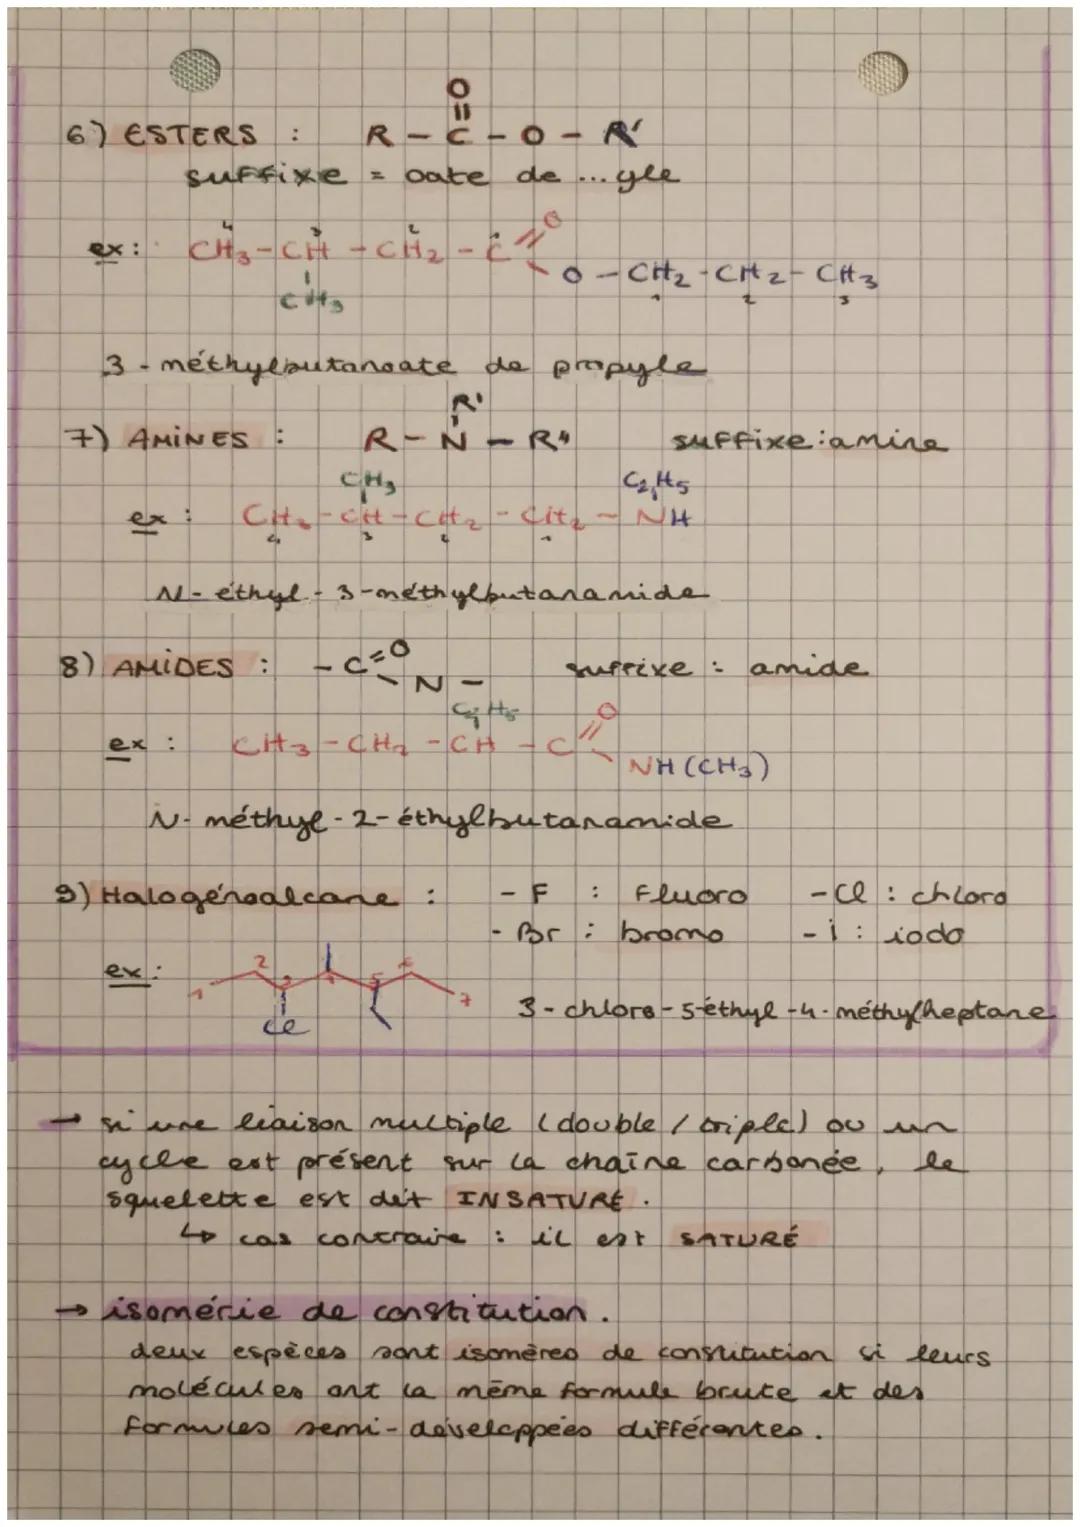 O
||
6) ESTERS : R - C - O - R'
suffixe = oate de ... yle
4 3 2 1 O
ex : CH3 - CH - CH2 - C
O - CH2 - CH2 - CH3
CH3 1 2 3
3 - méthylbutanoate de propyle
R'
7) AMINES : R - N - R" suffixe : amine
CH3 C2H5
ex : CH3 - CH - CH2 - CH2 - NH
4 3 2 1
N - éthyl - 3 - méthylbutanamide
8) AMIDES : - C = O suffixe : amide
N -
C2H5 O
ex : CH3 - CH2 - CH - C
NH (CH3)
N - méthyl - 2 - éthylbutanamide
9) Halogénoalcane : - F : Fluoro - Cl : chloro
- Br : bromo - i : iodo
ex :
1 2 3 4 5 6 7
Cl
3 - chloro - 5 - éthyl - 4 - méthylheptane
→ si une liaison multiple (double / triple) ou un
cycle est présent sur la chaîne carbonée, le
squelette est dit INSATURÉ.
↳ cas contraire : il est SATURÉ
→ isomérie de constitution.
deux espèces sont isomères de constitution si leurs
molécules ont la même formule brute et des
formules semi-développées différentes.